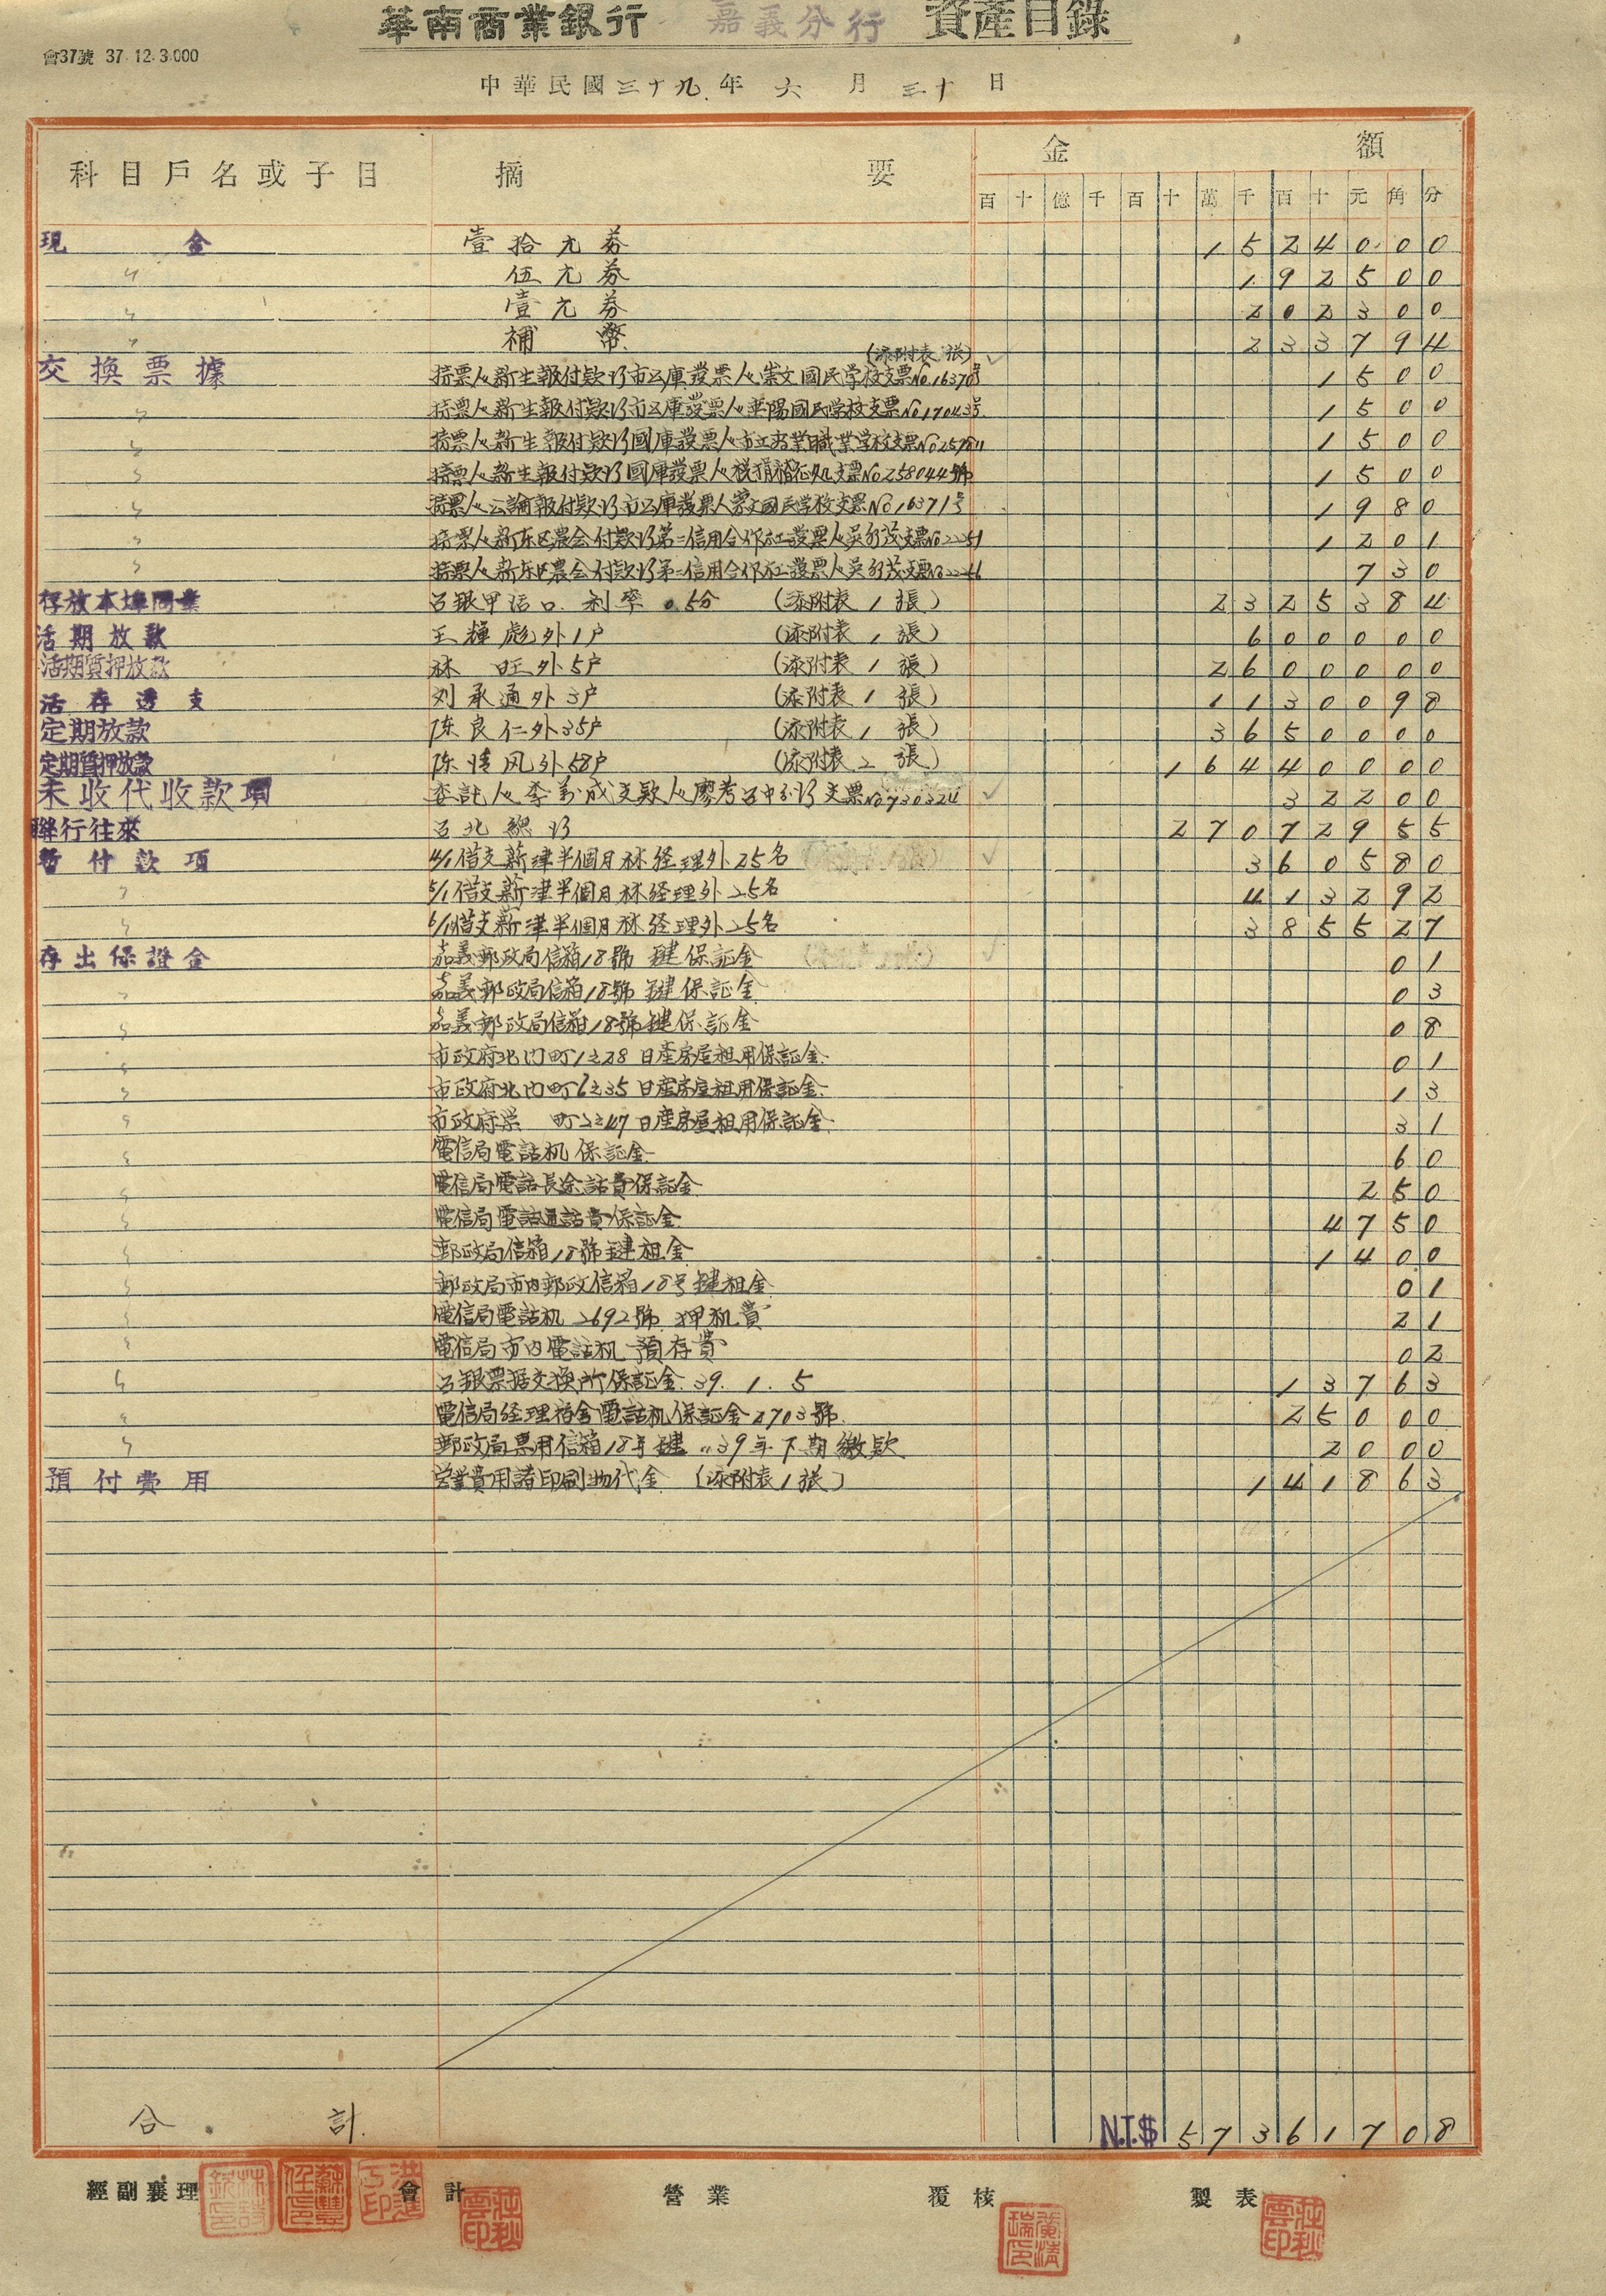 華南商業銀行 嘉義分行 資產目錄
會37號 37.12.3.000
中華民國三十九年 六 月 三十 日
科目戶名或子目 摘要 金額
百 十 億 千 百 十 萬 千 百 十 元 角 分
現金 壹拾元券 1 5 2 4 0 0 0
〃 伍元券 1 9 2 5 0 0
〃 壹元券 2 0 2 3 0 0
〃 補幣 2 3 3 7 9 4
(添附表 張)
交換票據 持票人新生報付款行市公庫發票人崇文國民学校支票No.16370号 1 5 0 0
〃 持票人新生報付款行市公庫發票人垂陽國民学校支票No17043号 1 5 0 0
〃 持票人新生報付款行國庫發票人市立商業職業学校支票 1 5 0 0
〃 持票人新生報付款行國庫發票人稅捐稽征処支票No258044號 1 5 0 0
〃 持票人公論報付款行市公庫發票人崇文國民学校支票No16371号 1 9 8 0
〃 持票人新东区農会付款行第二信用合作社發票人吳 茂支票No2251 1 2 0 1
〃 持票人新东区農会付款行第二信用合作社發票人吳 茂支票No2246 7 3 0
存放本埠同業 台銀甲活口 利率 0.5分 (添附表 1 張) 2 3 2 5 3 8 4
活期放款 王輝彪外1户 (添附表 1 張) 6 0 0 0 0 0
活期質押放款 林旺外5户 (添附表 1 張) 2 6 0 0 0 0 0
活存透支 刘承通外3户 (添附表 1 張) 1 1 3 0 0 9 8
定期放款 陈良仁外35户 (添附表 1 張) 3 6 5 0 0 0 0
定期質押放款 陈清风外58户 (添附表 2 張) 1 6 4 4 0 0 0 0
未收代收款項 委託人李 成支款人廖 台中分行支票No730324 3 2 2 0 0
聯行往來 台北總行 2 7 0 7 2 9 5 5
暫付款項 4/1借支薪津半個月林経理外25名 3 6 0 5 8 0
〃 5/1借支薪津半個月林経理外25名 4 1 3 2 9 2
〃 6/1借支薪津半個月林経理外25名 3 8 5 5 2 7
存出保證金 嘉義郵政局信箱18號 鍵保証金 0 1
〃 嘉義郵政局信箱18號 鍵保証金 0 3
〃 嘉義郵政局信箱18號鍵保証金 0 8
〃 市政府北门町1之28 日產房屋租用保証金 0 1
〃 市政府北门町6之35 日產房屋租用保証金 1 3
〃 市政府栄 町2之47 日產房屋租用保証金 3 1
〃 電信局電話机保証金 6 0
〃 電信局電話長途話費保証金 2 5 0
〃 電信局電話通話費保証金 4 7 5 0
〃 郵政局信箱18號鍵租金 1 4 0 0
〃 郵政局市内郵政信箱18号鍵租金 0 1
〃 電信局電話机 2692號 押机費 2 1
〃 電信局市内電話机 預存費 0 2
〃 台銀票据交換所保証金 39. 1. 5 1 3 7 6 3
〃 電信局経理宿舍電話机保証金2703號 2 5 0 0 0
〃 郵政局票用信箱18号鍵 39年下期繳款 2 0 0 0
預付費用 営業費用諸印刷物代金 (添附表1張) 1 4 1 8 6 3
合計 N.T.$ 5 7 3 6 1 7 0 8
經副襄理 會計 營業 覆核 製表
莊秋雲印 莊秋雲印